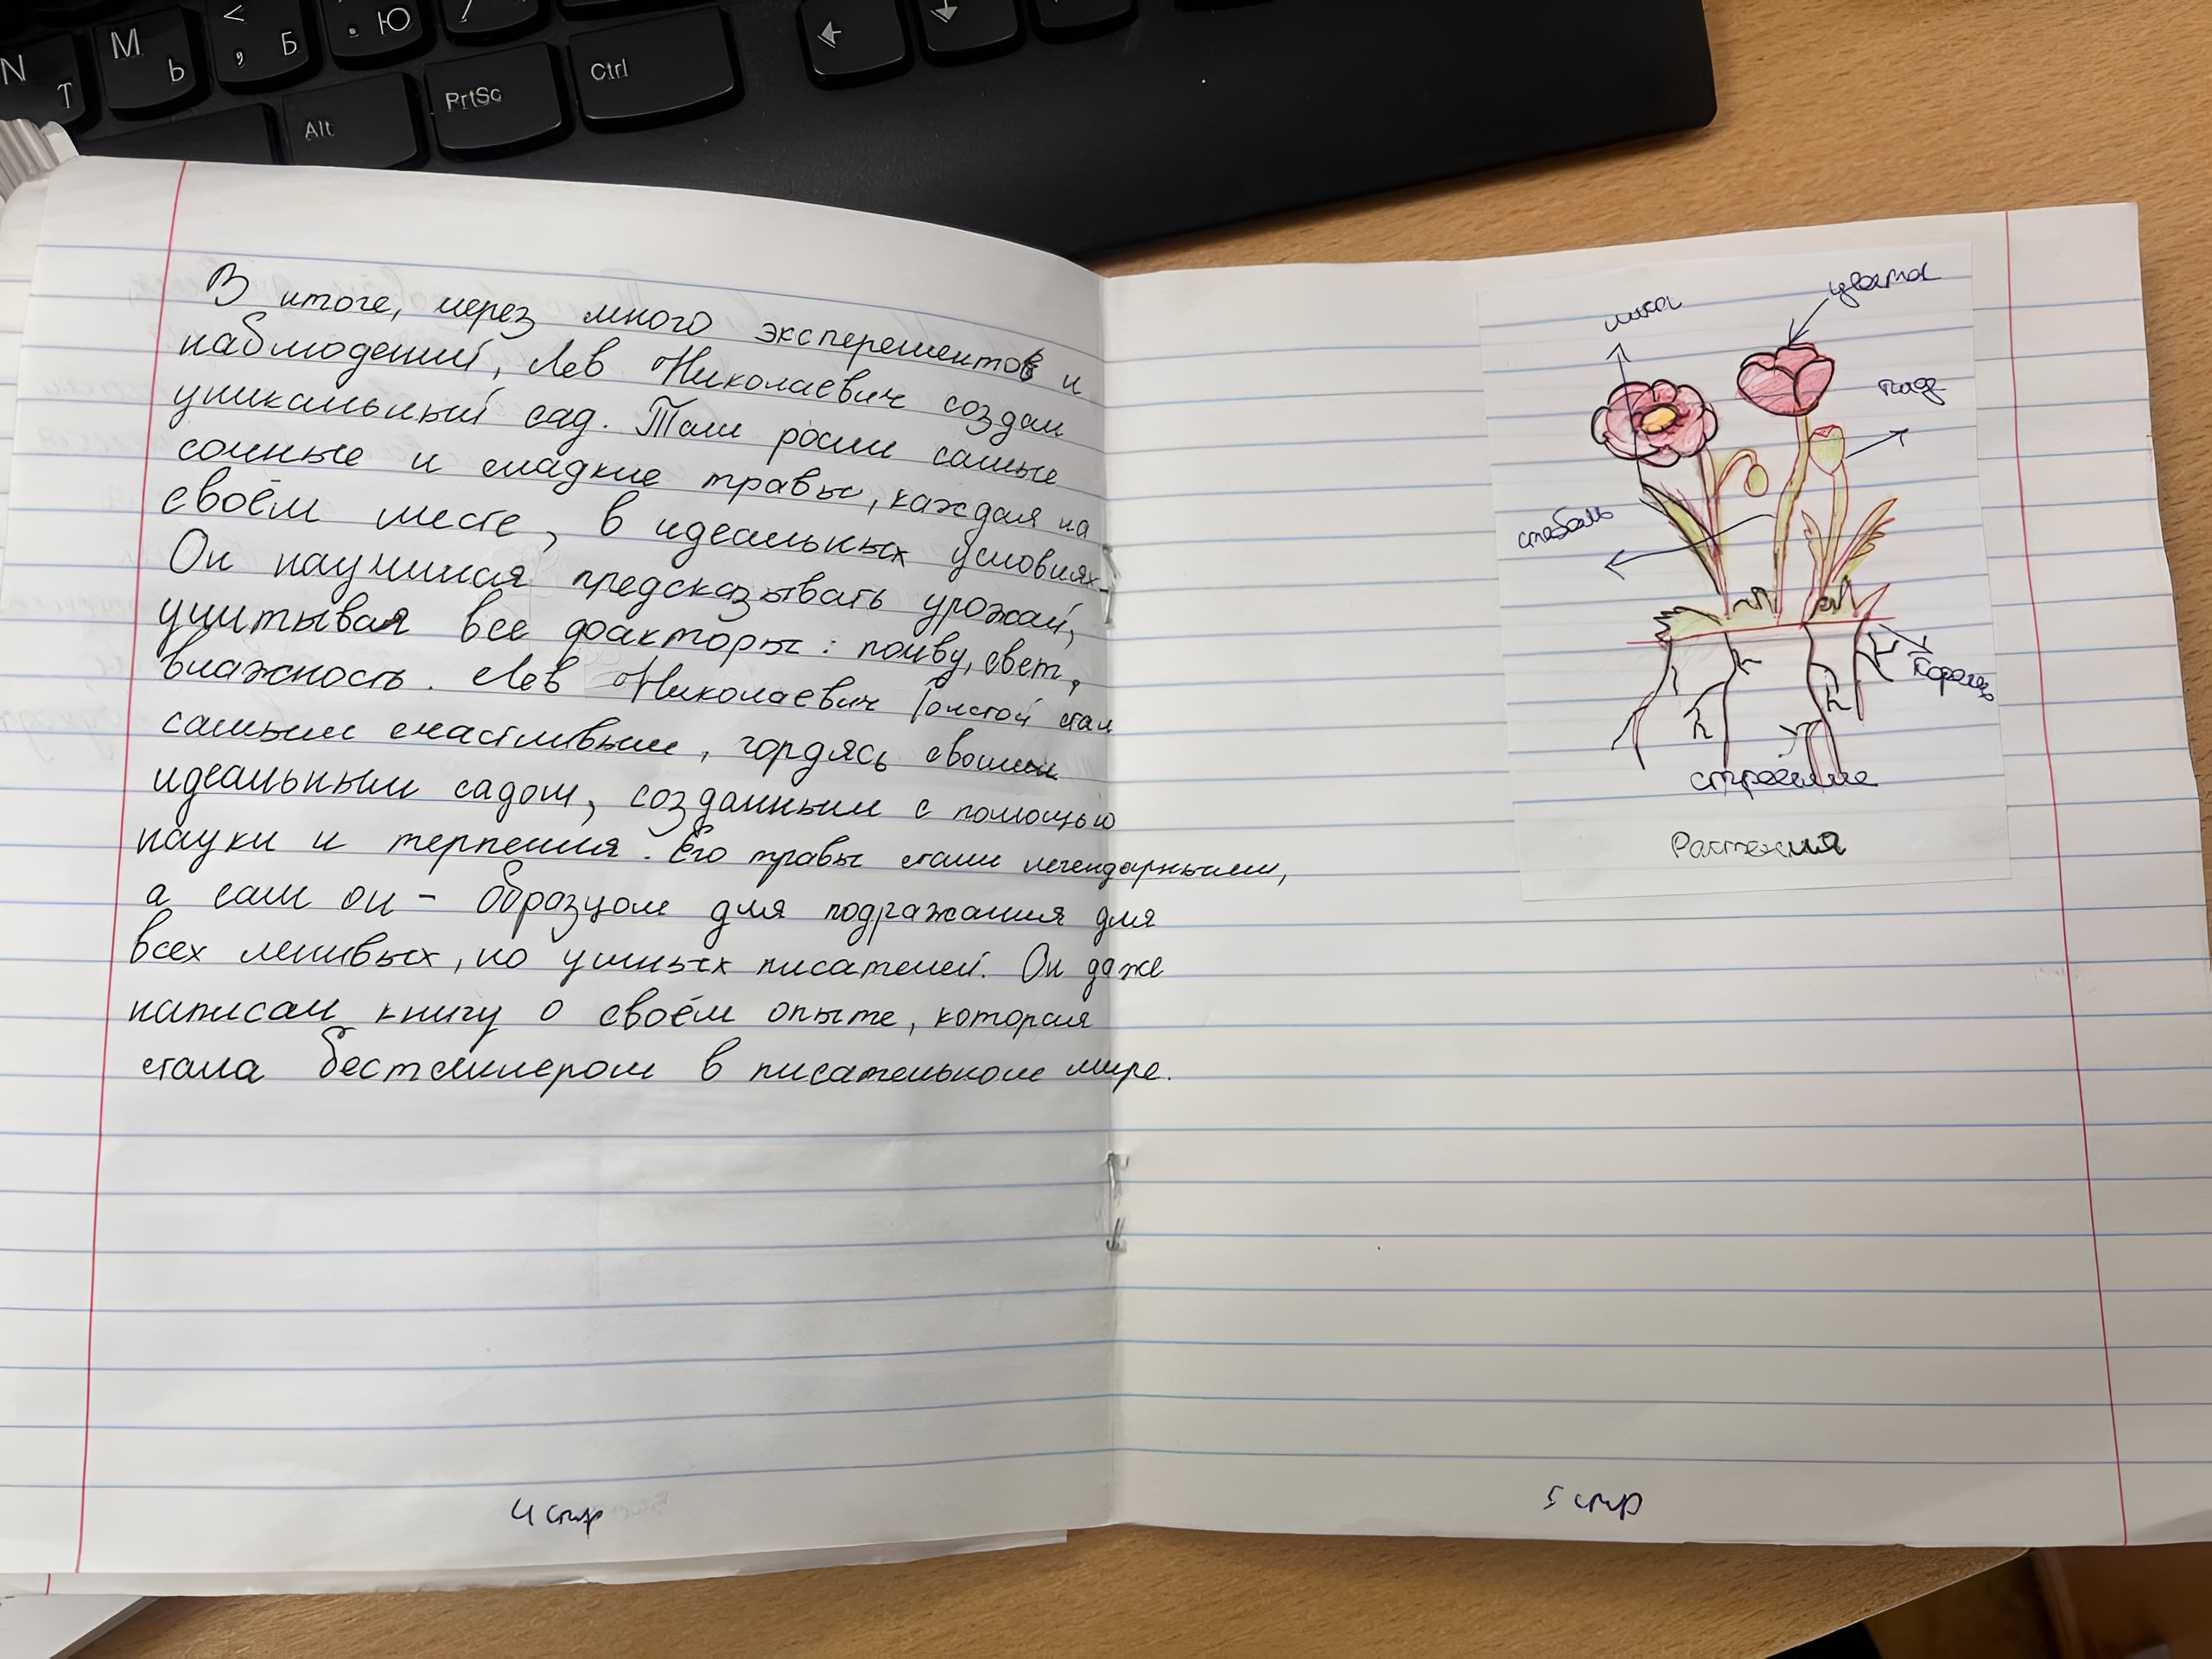 N Т
М Ь
< , Б
. Ю
/
Alt
PrtSc
Ctrl
В итоге, через много эксперементов и
наблюдений, Лев Николаевич создал
уникальный сад. Там росли самые
сочные и сладкие травы, каждая на
своём месте, в идеальных условиях.
Он научился предсказывать урожай,
учитывая все факторы: почву, свет,
влажность. Лев Николаевич Толстой стал
самым счастливым, гордясь своим
идеальным садом, созданным с помощью
науки и терпения. Его травы стали легендарными,
а сам он - образцом для подражания для
всех ленивых, но умных писателей. Он даже
написал книгу о своём опыте, которая
стала бестселлером в писательском мире.
4 стр
цветок
плод
стебель
корень
строение
Растения
5 стр